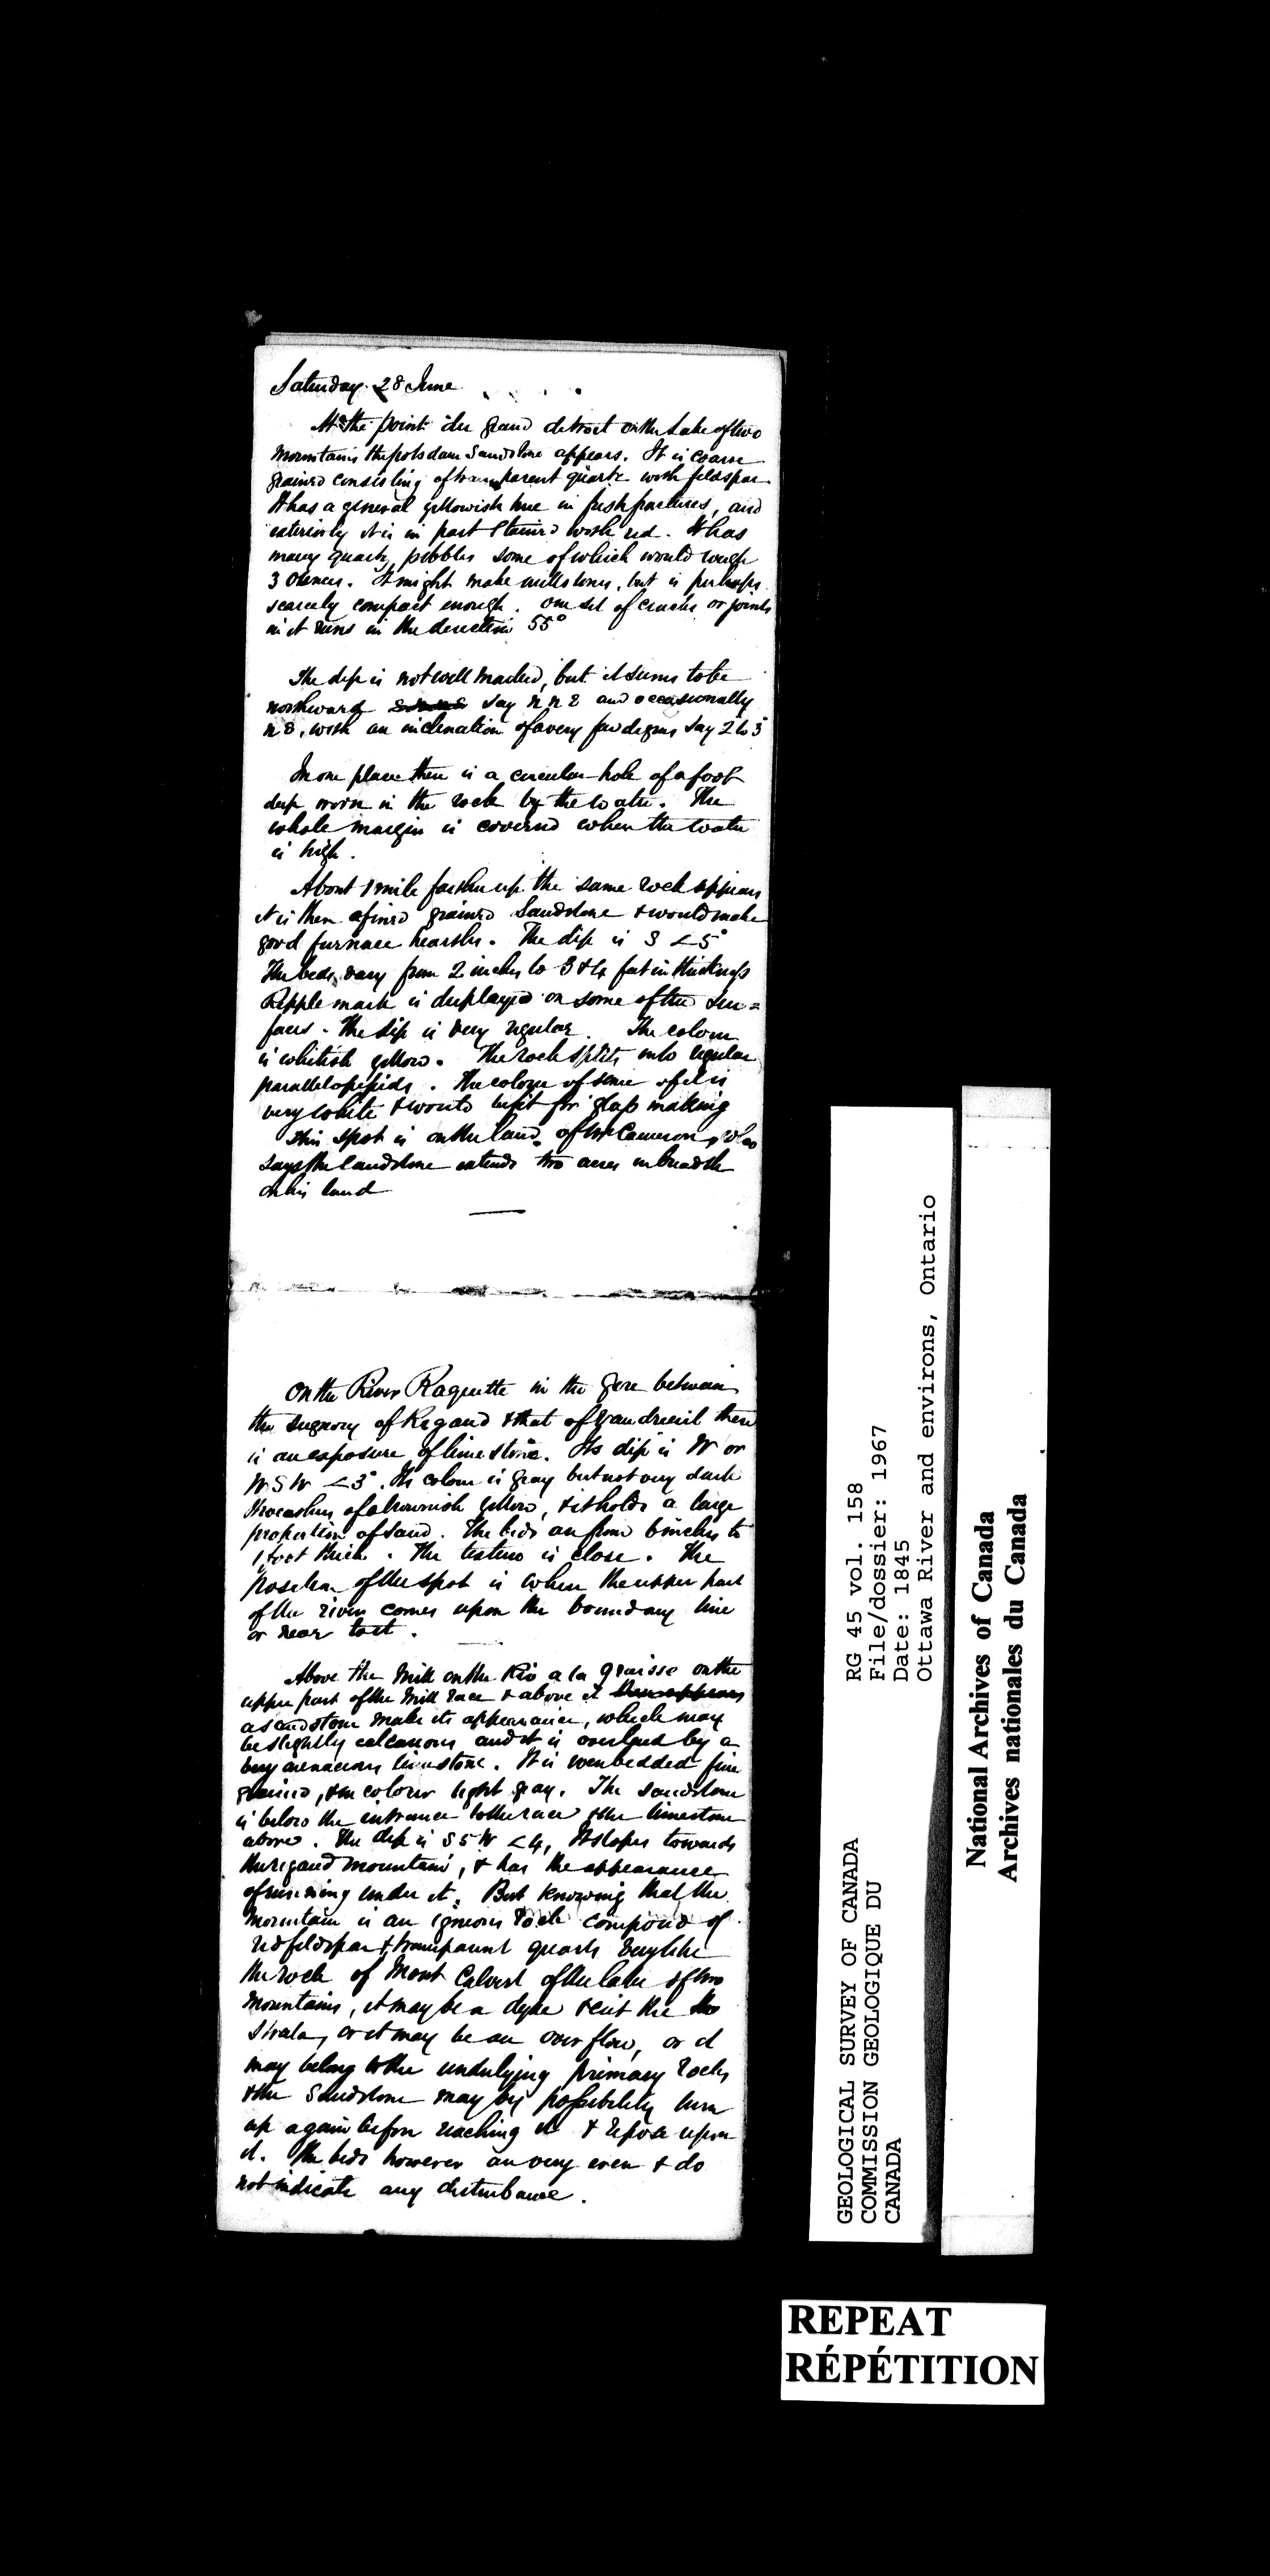 Saturday 28 June
At the point du grand detroit on the Lake of two
Mountains the potsdam Sandstone appears. It is coarse
grained consisting of transparent quartz with feldspar.
It has a general yellowish hue in fresh fractures, and
exteriorly it is in part stained with red. It has
many quartz pebbles some of which would weigh
3 ounces. It might make millstones, but is perhaps
scarcely compact enough. One set of cracks or joints
in it runs in the direction 55°
The dip is not well marked, but it seems to be
northward say N N E and occasionally
N E, with an inclination of a very few degrees say 2 to 3°
In one place there is a circular hole of a foot
deep worn in the rock by the water. The
whole margin is covered when the water
is high.
About 1 mile farther up the same rock appears
it is then a fine grained Sandstone & would make
good furnace hearths. The dip is S <5°
The beds vary from 2 inches to 3 & 4 feet in thickness
Ripple mark is displayed on some of the sur=
faces. The dip is very regular. The colour
is whitish yellow. The rock splits into regular
parallelopipids. The colour of some of it is
very white & would be fit for glass making
This spot is on the land of Mr Cameron, who
says the sandstone extends two acres in breadth
on his land
On the River Raquette in the gore between
the seignory of Rigaud & that of Vaudreuil there
is an exposure of limestone. Its dip is W or
W S W <3°. Its colour is gray but not very dark
it weathers of a brownish yellow, & it holds a large
proportion of sand. The beds are from 6 inches to
1 foot thick. The texture is close. The
position of the spot is where the upper part
of the river comes upon the boundary line
or near to it.
Above the Mill on the Riv a la Graisse on the
upper part of the Mill race & above it there appears
a sandstone makes its appearance, which may
be slightly calcareous and it is overlaid by a
very arenaceous limestone. It is even bedded fine
grained, & in colour light gray. The sandstone
is below the entrance to the race & the limestone
above. The dip is S 5 W <4, It slopes towards
the rigaud mountain, & has the appearance
of running under it. But knowing that the
mountain is an igneous rock composed of
red feldspar & transparent quartz very like
the rock of Mont Calvert of the lake of two
Mountains, it may be a dyke & cut the the
strata, or it may be an over flow, or it
may belong to the underlying primary rocks
& the Sandstone may by possibility turn
up again before reaching it & repose upon
it. The beds however are very even & do
not indicate any disturbance.
GEOLOGICAL SURVEY OF CANADA
COMMISSION GEOLOGIQUE DU
CANADA
RG 45 vol. 158
File/dossier: 1967
Date: 1845
Ottawa River and environs, Ontario
National Archives of Canada
Archives nationales du Canada
REPEAT
RÉPÉTITION